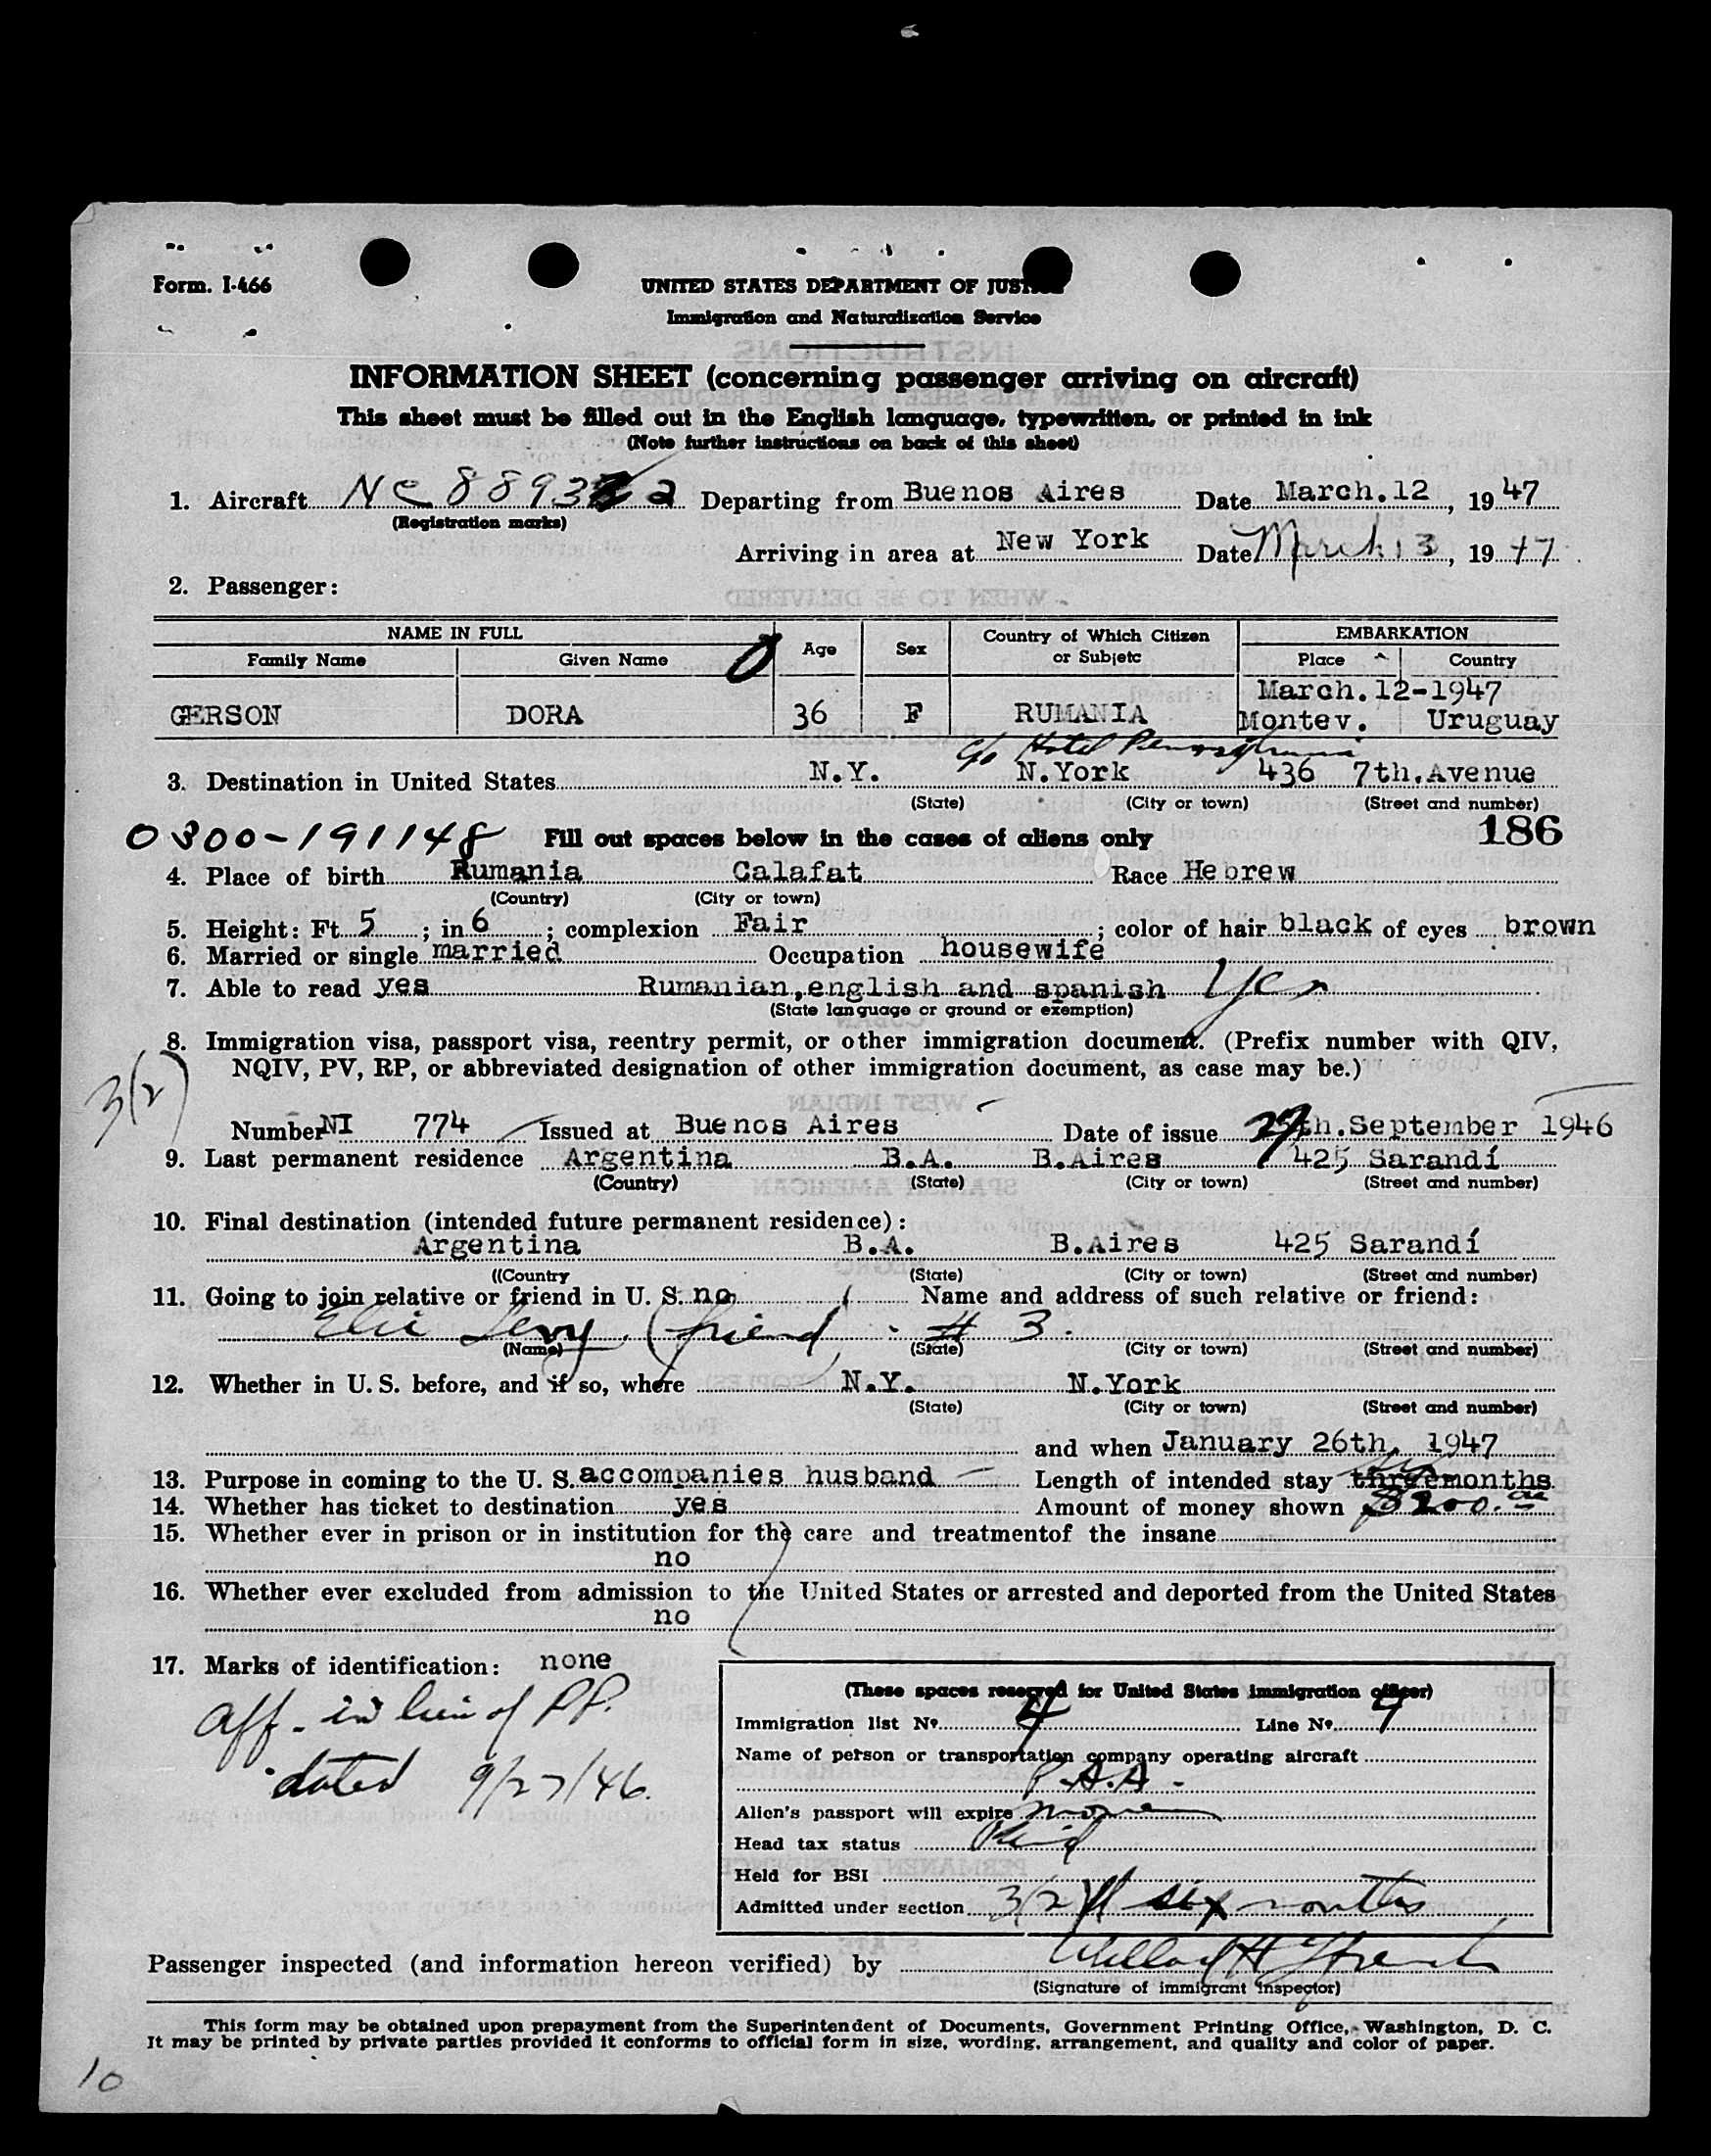 Form. I-466
UNITED STATES DEPARTMENT OF JUST
Immigration and Naturalization Service
INFORMATION SHEET (concerning passenger arriving on aircraft)
This sheet must be filled out in the English language, typewritten, or printed in ink
(Note further instructions on back of this sheet)
1. Aircraft NC 8893 2 Departing from Buenos Aires Date March.12, 1947
(Registration marks)
Arriving in area at New York Date March 13, 1947
2. Passenger:
NAME IN FULL Age Sex Country of Which Citizen or Subjetc EMBARKATION
Family Name Given Name Place Country
March.12-1947
GERSON DORA 36 F RUMANIA Montev. Uruguay
c/o Hotel Pennsylvania
3. Destination in United States N.Y. N.York 436 7th.Avenue
(State) (City or town) (Street and number)
0300-191148 Fill out spaces below in the cases of aliens only 186
4. Place of birth Rumania Calafat Race Hebrew
(Country) (City or town)
5. Height: Ft 5 ; in 6 ; complexion Fair ; color of hair black of eyes brown
6. Married or single married Occupation housewife
7. Able to read yes Rumanian,english and spanish Yes
(State language or ground or exemption)
8. Immigration visa, passport visa, reentry permit, or other immigration document. (Prefix number with QIV,
NQIV, PV, RP, or abbreviated designation of other immigration document, as case may be.)
3(2)
Number NI 774 Issued at Buenos Aires Date of issue 27th.September 1946
9. Last permanent residence Argentina B.A. B.Aires 425 Sarandí
(Country) (State) (City or town) (Street and number)
10. Final destination (intended future permanent residence):
Argentina B.A. B.Aires 425 Sarandí
((Country (State) (City or town) (Street and number)
11. Going to join relative or friend in U. S. no Name and address of such relative or friend:
Elie Levy. (friend) # 3.
(Name) (State) (City or town) (Street and number)
12. Whether in U. S. before, and if so, where N.Y. N.York
(State) (City or town) (Street and number)
and when January 26th, 1947
13. Purpose in coming to the U. S. accompanies husband Length of intended stay six three months
14. Whether has ticket to destination yes Amount of money shown $200.00
15. Whether ever in prison or in institution for the care and treatmentof the insane
no
16. Whether ever excluded from admission to the United States or arrested and deported from the United States
no
17. Marks of identification: none
Aff. in lieu of P.P.
dated 9/27/46.
(These spaces reserved for United States immigration officer)
Immigration list Nº 4 Line Nº
Name of person or transportation company operating aircraft
P.A.A.
Alien's passport will expire
Head tax status Paid
Held for BSI
Admitted under section 3(2) six months
Passenger inspected (and information hereon verified) by
(Signature of immigrant inspector)
This form may be obtained upon prepayment from the Superintendent of Documents, Government Printing Office, Washington, D. C.
It may be printed by private parties provided it conforms to official form in size, wording, arrangement, and quality and color of paper.
10